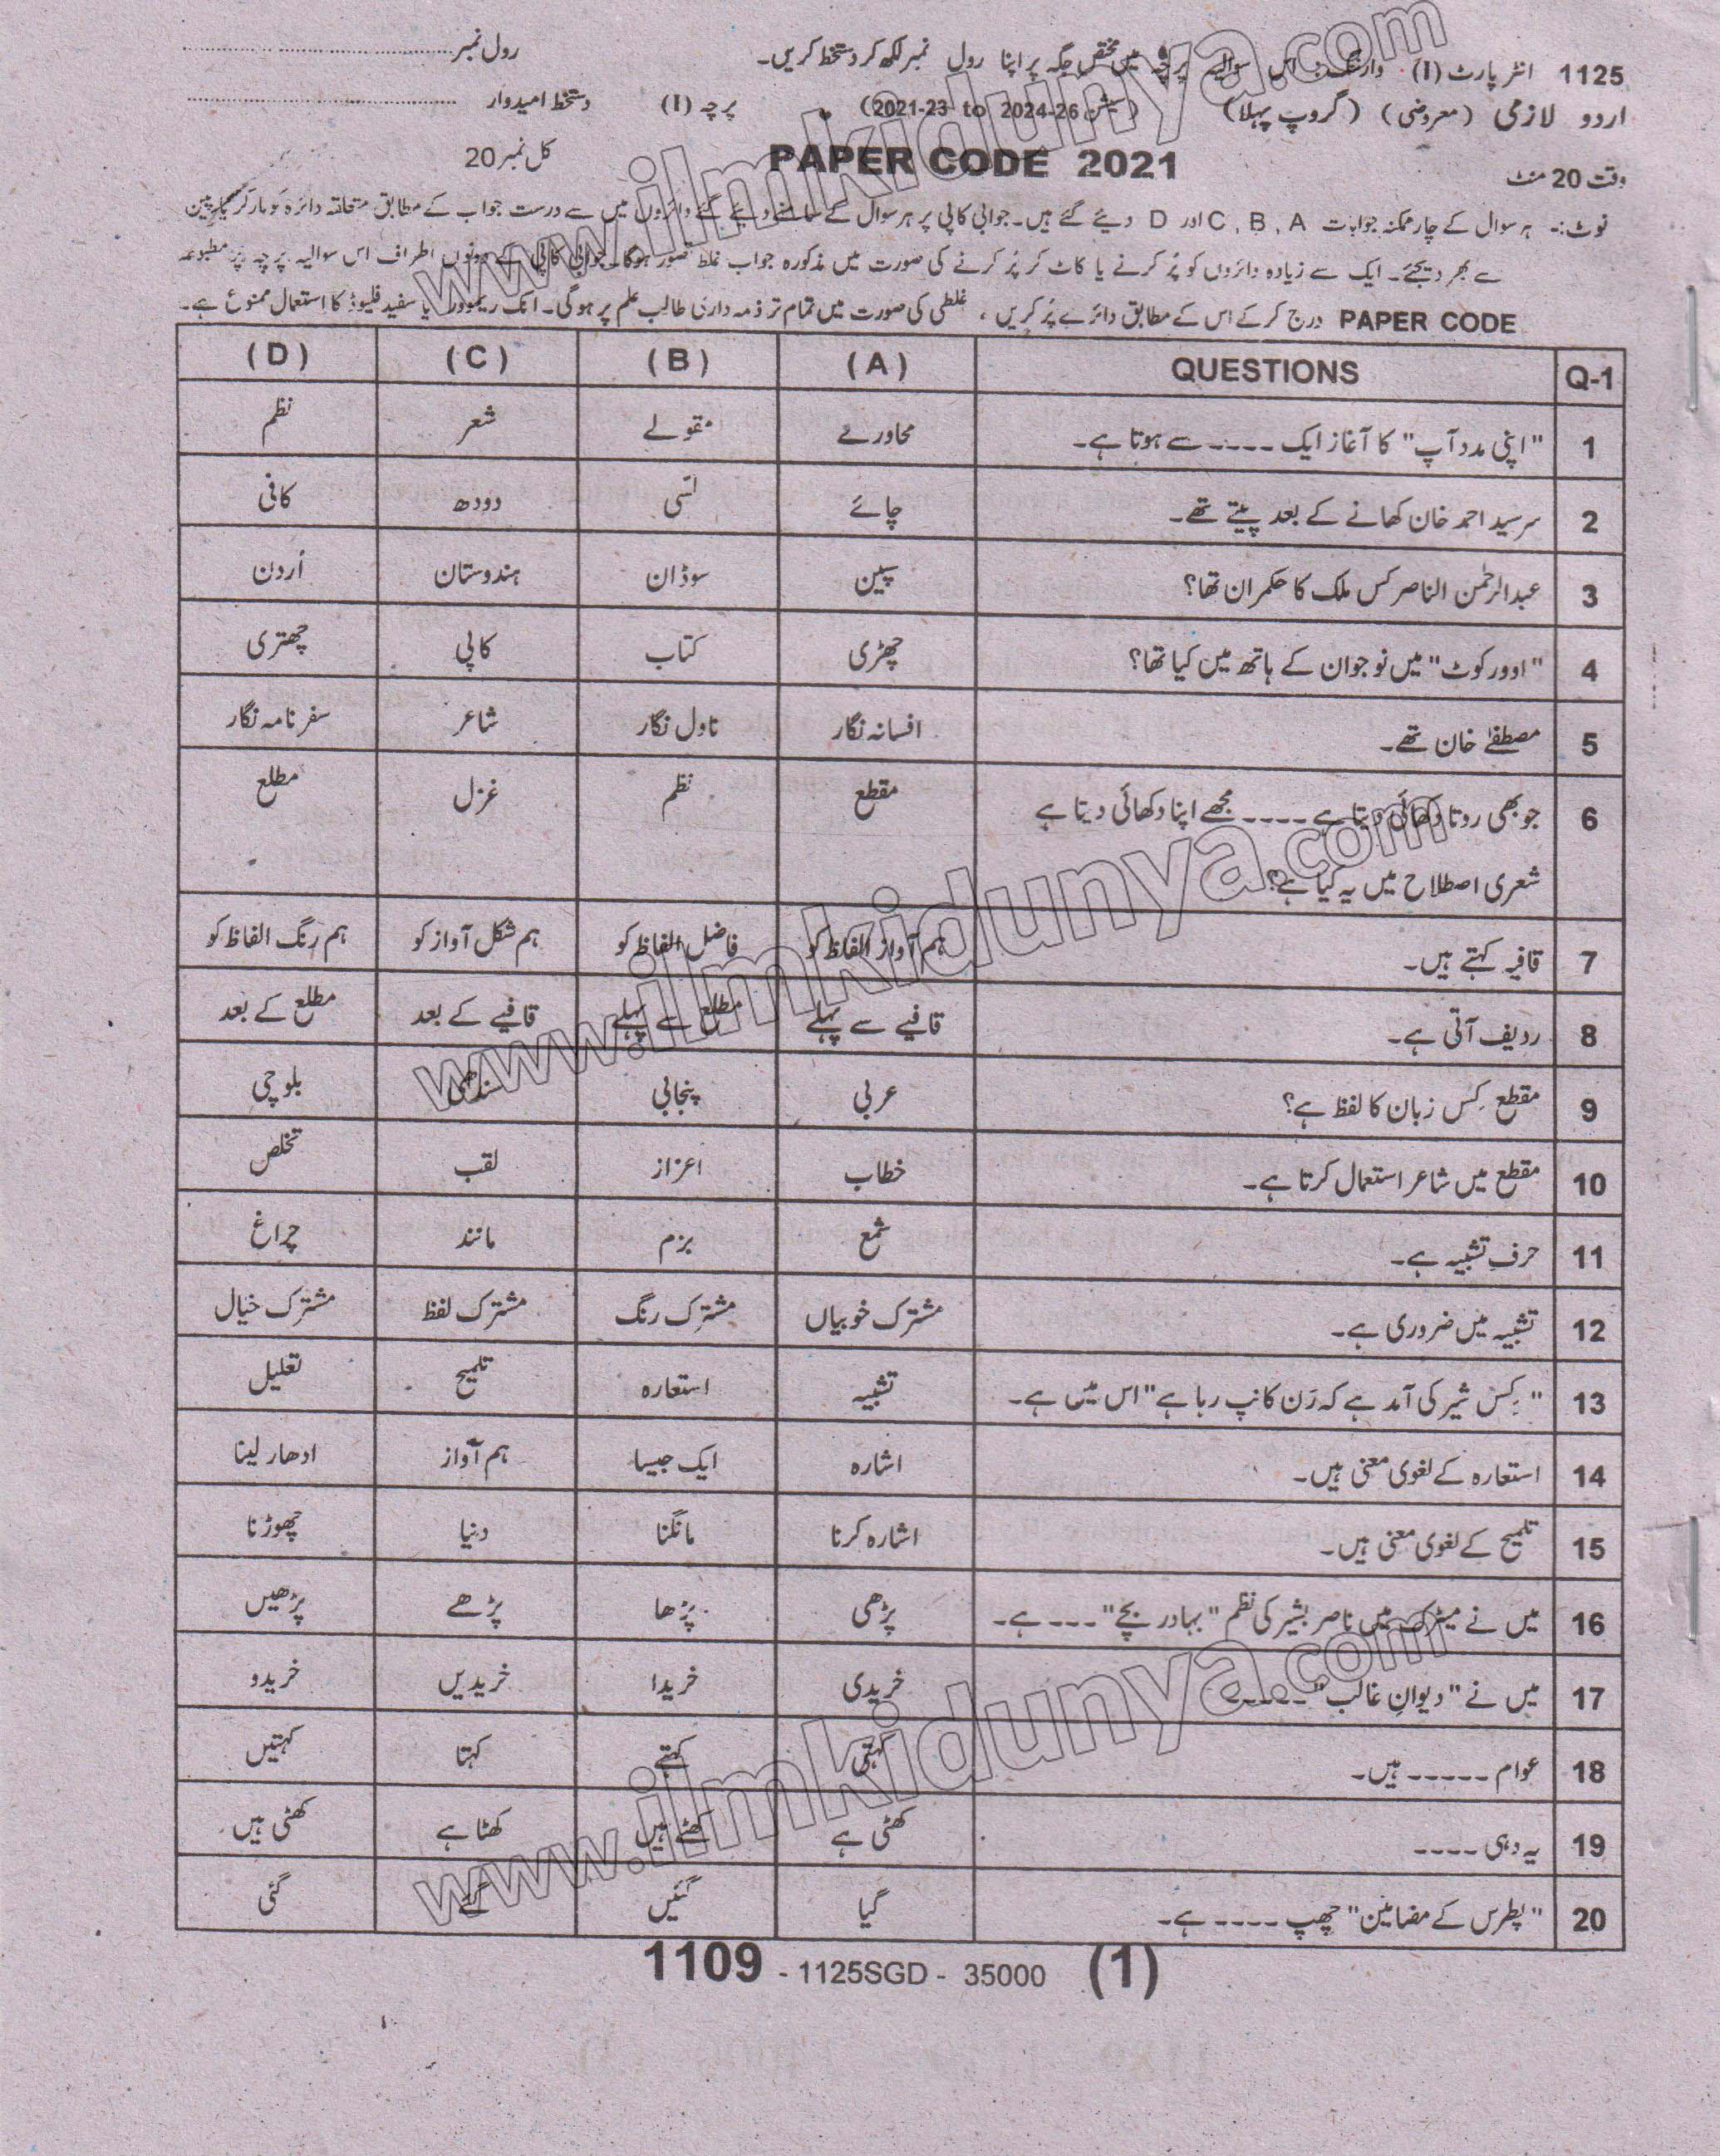 1125 انٹر پارٹ (I) وارننگ: اس سوالیہ پرچہ میں مختص جگہ پر اپنا رول نمبر لکھ کر دستخط کریں۔ رول نمبر
اردو لازمی (معروضی) (گروپ پہلا) (سیشن 2021-23 to 2024-26) پرچہ (I) دستخط امیدوار
وقت 20 منٹ PAPER CODE 2021 کل نمبر 20
نوٹ:- ہر سوال کے چار ممکنہ جوابات A , B , C اور D دیئے گئے ہیں۔ جوابی کاپی پر ہر سوال کے سامنے دیئے گئے دائروں میں سے درست جواب کے مطابق متعلقہ دائرہ کو مارکر یا پین
سے بھر دیجئے۔ ایک سے زیادہ دائروں کو پُر کرنے یا کاٹ کر پُر کرنے کی صورت میں مذکورہ جواب غلط تصور ہوگا۔ جوابی کاپی کے دونوں اطراف اس سوالیہ پرچہ پر مطبوعہ
PAPER CODE درج کر کے اس کے مطابق دائرے پُر کریں ، غلطی کی صورت میں تمام تر ذمہ داری طالب علم پر ہوگی۔ انک ریموور یا سفید فلیوڈ کا استعمال ممنوع ہے۔
Q-1 QUESTIONS (A) (B) (C) (D)
1 "اپنی مدد آپ" کا آغاز ایک ---- سے ہوتا ہے۔ محاورے مقولے شعر نظم
2 سرسید احمد خان کھانے کے بعد پیتے تھے۔ چائے لسّی دودھ کافی
3 عبدالرحمٰن الناصر کس ملک کا حکمران تھا؟ سپین سوڈان ہندوستان اُردن
4 "اوورکوٹ" میں نوجوان کے ہاتھ میں کیا تھا؟ چھڑی کتاب کاپی چھتری
5 مصطفےٰ خان تھے۔ افسانہ نگار ناول نگار شاعر سفرنامہ نگار
6 جو بھی روتا دکھائی دیتا ہے ---- مجھے اپنا دکھائی دیتا ہے مقطع نظم غزل مطلع
شعری اصطلاح میں یہ کیا ہے؟
7 قافیہ کہتے ہیں۔ ہم آواز الفاظ کو فاضل الفاظ کو ہم شکل آواز کو ہم رنگ الفاظ کو
8 ردیف آتی ہے۔ قافیے سے پہلے مطلع سے پہلے قافیے کے بعد مطلع کے بعد
9 مقطع کِس زبان کا لفظ ہے؟ عربی پنجابی سندھی بلوچی
10 مقطع میں شاعر استعمال کرتا ہے۔ خطاب اعزاز لقب تخلص
11 حرفِ تشبیہ ہے۔ شمع بزم مانند چراغ
12 تشبیہ میں ضروری ہے۔ مشترک خوبیاں مشترک رنگ مشترک لفظ مشترک خیال
13 "کِس شیر کی آمد ہے کہ رَن کانپ رہا ہے" اس میں ہے۔ تشبیہ استعارہ تلمیح تعلیل
14 استعارہ کے لغوی معنی ہیں۔ اشارہ ایک جیسا ہم آواز ادھار لینا
15 تلمیح کے لغوی معنی ہیں۔ اشارہ کرنا مانگنا دنیا چھوڑنا
16 میں نے میٹرک میں ناصر بشیر کی نظم "بہادر بچے" --- ہے۔ پڑھی پڑھا پڑھے پڑھیں
17 میں نے "دیوانِ غالب" ----- خریدی خریدا خریدیں خریدو
18 عوام ----- ہیں۔ کہتی کہتے کہتا کہتیں
19 یہ دہی ---- کھٹی ہے کھٹے ہیں کھٹا ہے کھٹی ہیں
20 "پطرس کے مضامین" چھپ ---- ہے۔ گیا گئیں گئے گئی
1109 - 1125SGD - 35000 (1)
www.ilmkidunya.com
www.ilmkidunya.com
www.ilmkidunya.com